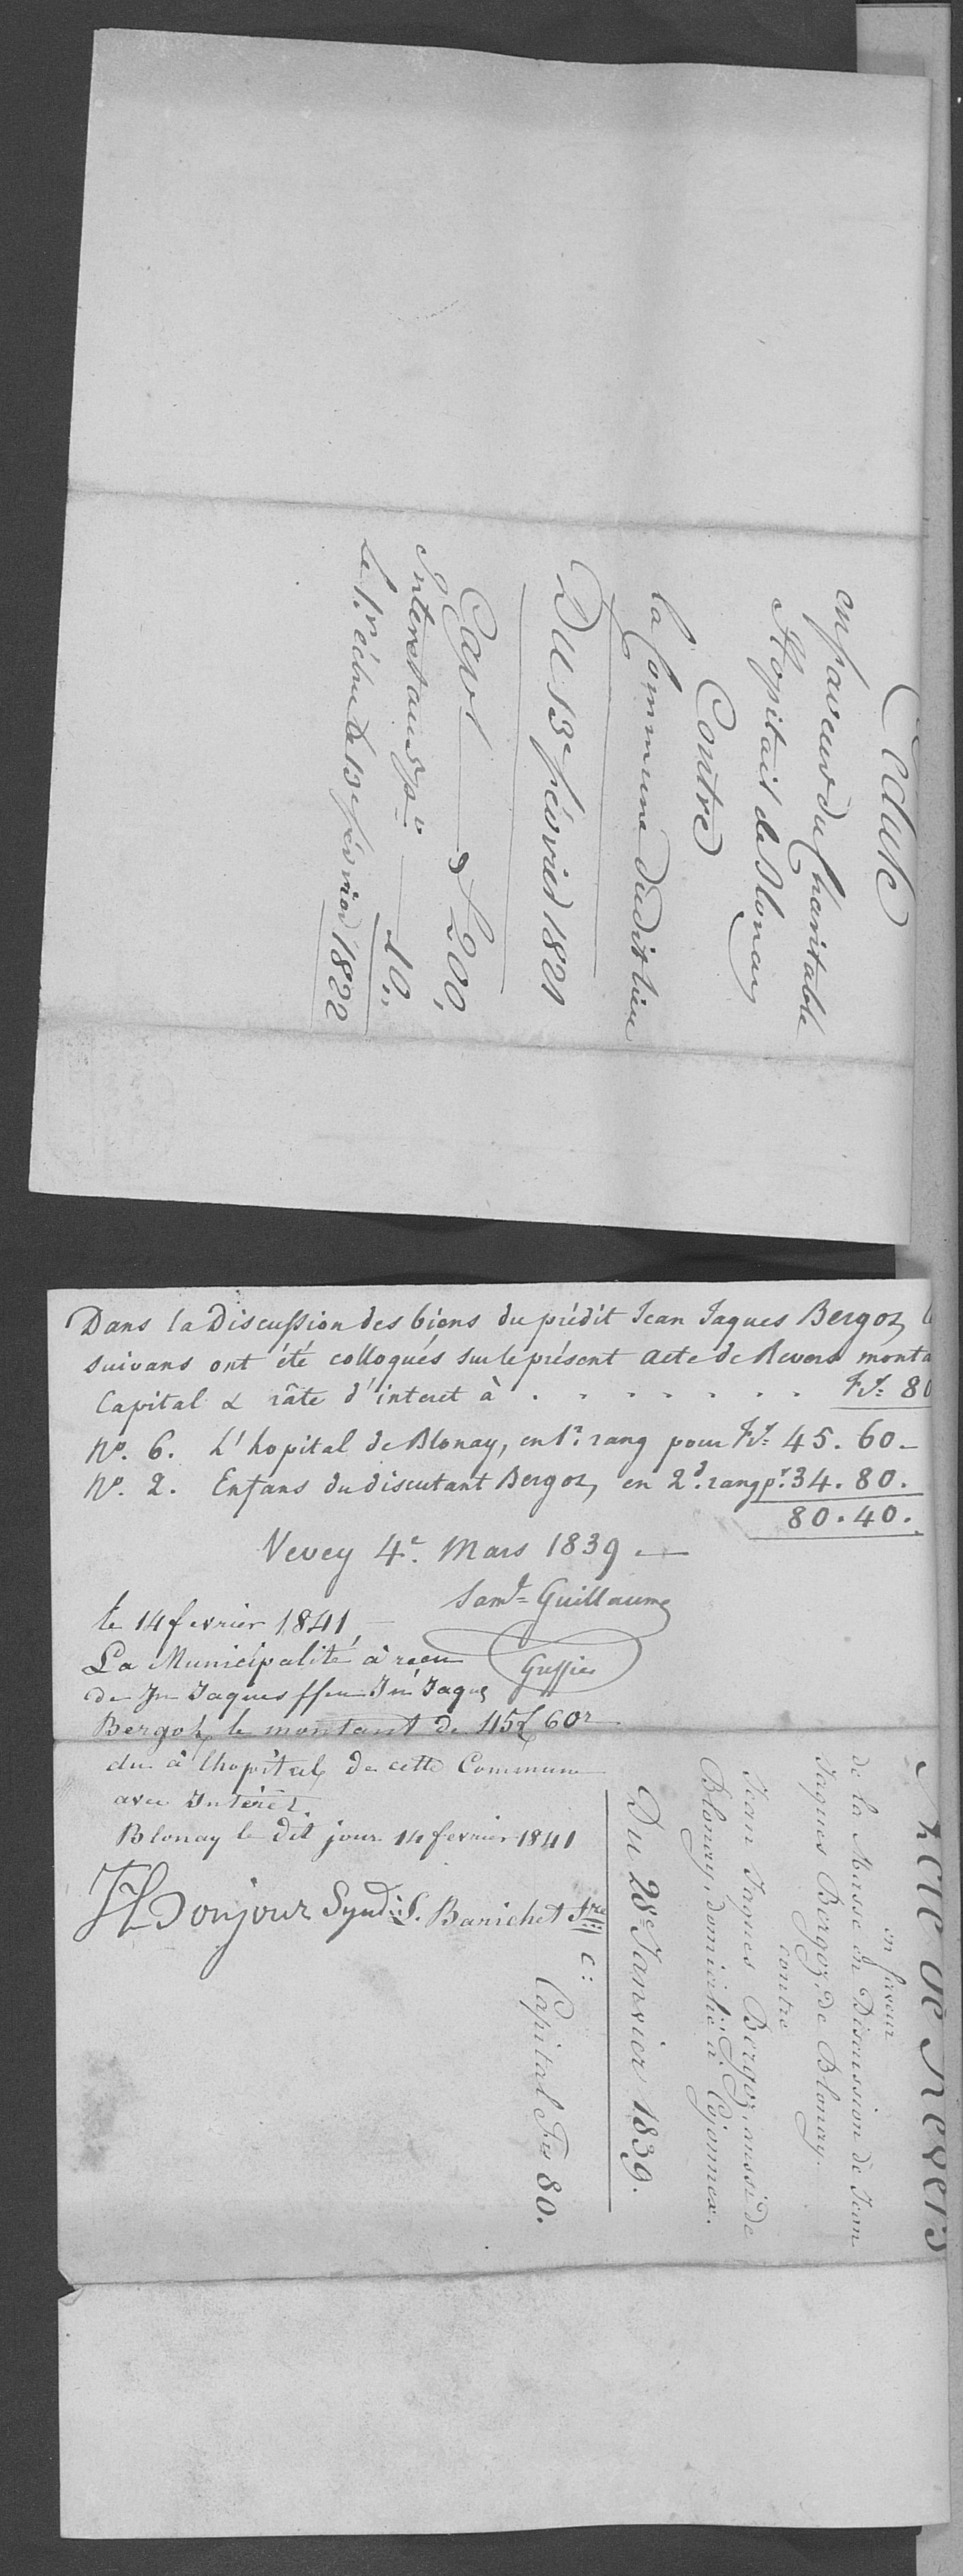 Cédule
en faveur du Charitable
Hopital de Blonay
Contre
la Commune dudit lieu
Du 13e février 1821
Capl £ 200,
Interet au 5 p%
10 "
Le 1r échu le 13e février 1822
Dans la Discussion des biens du prédit Jean Jaques Bergoz
suivans ont été colloqués sur le présent acte de Revers monta
Capital & râte d'interet à . . . . . . . Fs= 80
No. 6. L'hopital de Blonay, en 1r rang pour Fs= 45. 60 –
No. 2. Enfans du discutant Bergoz, en 2d. rang pr. 34. 80.
80. 40.
Vevey 4e. Mars 1839 –
Saml= Guillaume
Greffier
le 14 fevrier 1841, –
La Municipalité à recu
de Jn Jaques ffeu Jn Jaques
Bergoz le montant de 45£ 60r
du à lhopital de cette Commune
avec Intérêt
Blonay le dit jour 14 fevrier 1841
Bonjour Synd: S. Barichet Sre
Acte de Revers
en faveur
de la Masse en Discussion de Jean
Jaques Bergoz, de Blonay.
contre
Jean Jaques Bergoz, aussi de
Blonay, domicilié à Cojonnex.
Du 28e Janvier 1839.
c:
Capital Frs 80.